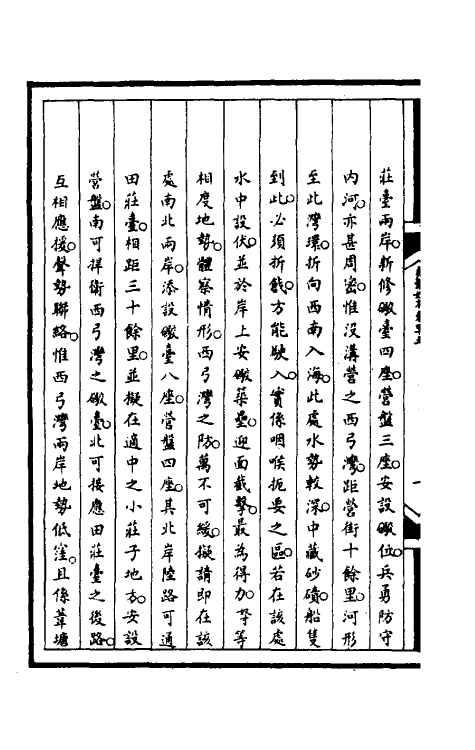 莊臺兩岸新修礮臺四座營盤三座安設礮位兵勇防守
內河亦甚周密惟沒溝營之西弓灣距營街十餘里河形
至此灣環折向西南入海此處水勢較深中藏砂磧船隻
到此必須折戧方能駛入實係咽喉扼要之區若在該處
水中設伏並於岸上安礮築壘迎面截擊最為得力等
相度地勢體察情形西弓灣之防萬不可緩擬請即在該
處南北兩岸添設礮臺八座營盤四座其北岸陸路可通
田莊臺相距三十餘里並擬在適中之小莊子地方安設
營盤南可捍衛西弓灣之礮臺北可接應田莊臺之後路
互相應援聲勢聯絡惟西弓灣兩岸地勢低窪且係葦塘